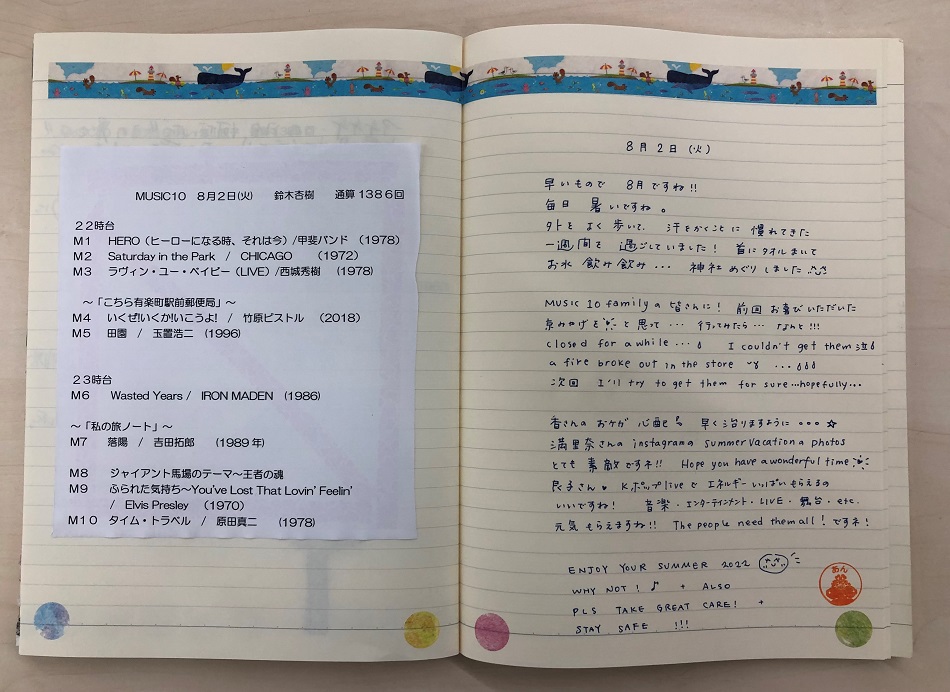 MUSIC10 8月2日(火) 鈴木杏樹 通算1386回
22時台
M1 HERO(ヒーローになる時、それは今)/甲斐バンド (1978)
M2 Saturday in the Park / CHICAGO (1972)
M3 ラヴィン・ユー・ベイビー(LIVE)/西城秀樹 (1978)
~「こちら有楽町駅前郵便局」~
M4 いくぜ!いくか!いこうよ! / 竹原ピストル (2018)
M5 田園 / 玉置浩二 (1996)
23時台
M6 Wasted Years / IRON MADEN (1986)
~「私の旅ノート」~
M7 落陽 / 吉田拓郎 (1989年)
M8 ジャイアント馬場のテーマ~王者の魂
M9 ふられた気持ち~You've Lost That Lovin' Feelin'
/ Elvis Presley (1970)
M10 タイム・トラベル / 原田真二 (1978)
8月2日(火)
早いもので 8月ですね!!
毎日 暑いですね。
外を よく 歩いて、 汗をかくことに 慣れてきた
一週間を 過ごしていました! 首にタオルまいて
お水 飲み飲み... 神社 めぐり しました
MUSIC 10 familyの 皆さんに! 前回 お喜びいただいた
京みやげを と思って... 行ってみたら... なんと!!!
closed for a while... I couldn't get them 泣
a fire broke out in the store ...
次回 I'll try to get them for sure...hopefully...
香さんのおケガ 心配 早く治りますように 。。。☆
満里奈さんの instagramの summer vacationの photos
とても 素敵ですネ!! Hope you have a wonderful time
良子さん Kポップ liveで エネルギー いっぱい もらえるの
いいですね! 音楽・エンターテインメント・LIVE・舞台・etc.
元気 もらえますね!! The people need them all! ですネ!
ENJOY YOUR SUMMER 2022
WHY NOT! ♪ + ALSO
PLS TAKE GREAT CARE! +
STAY SAFE !!!
あん